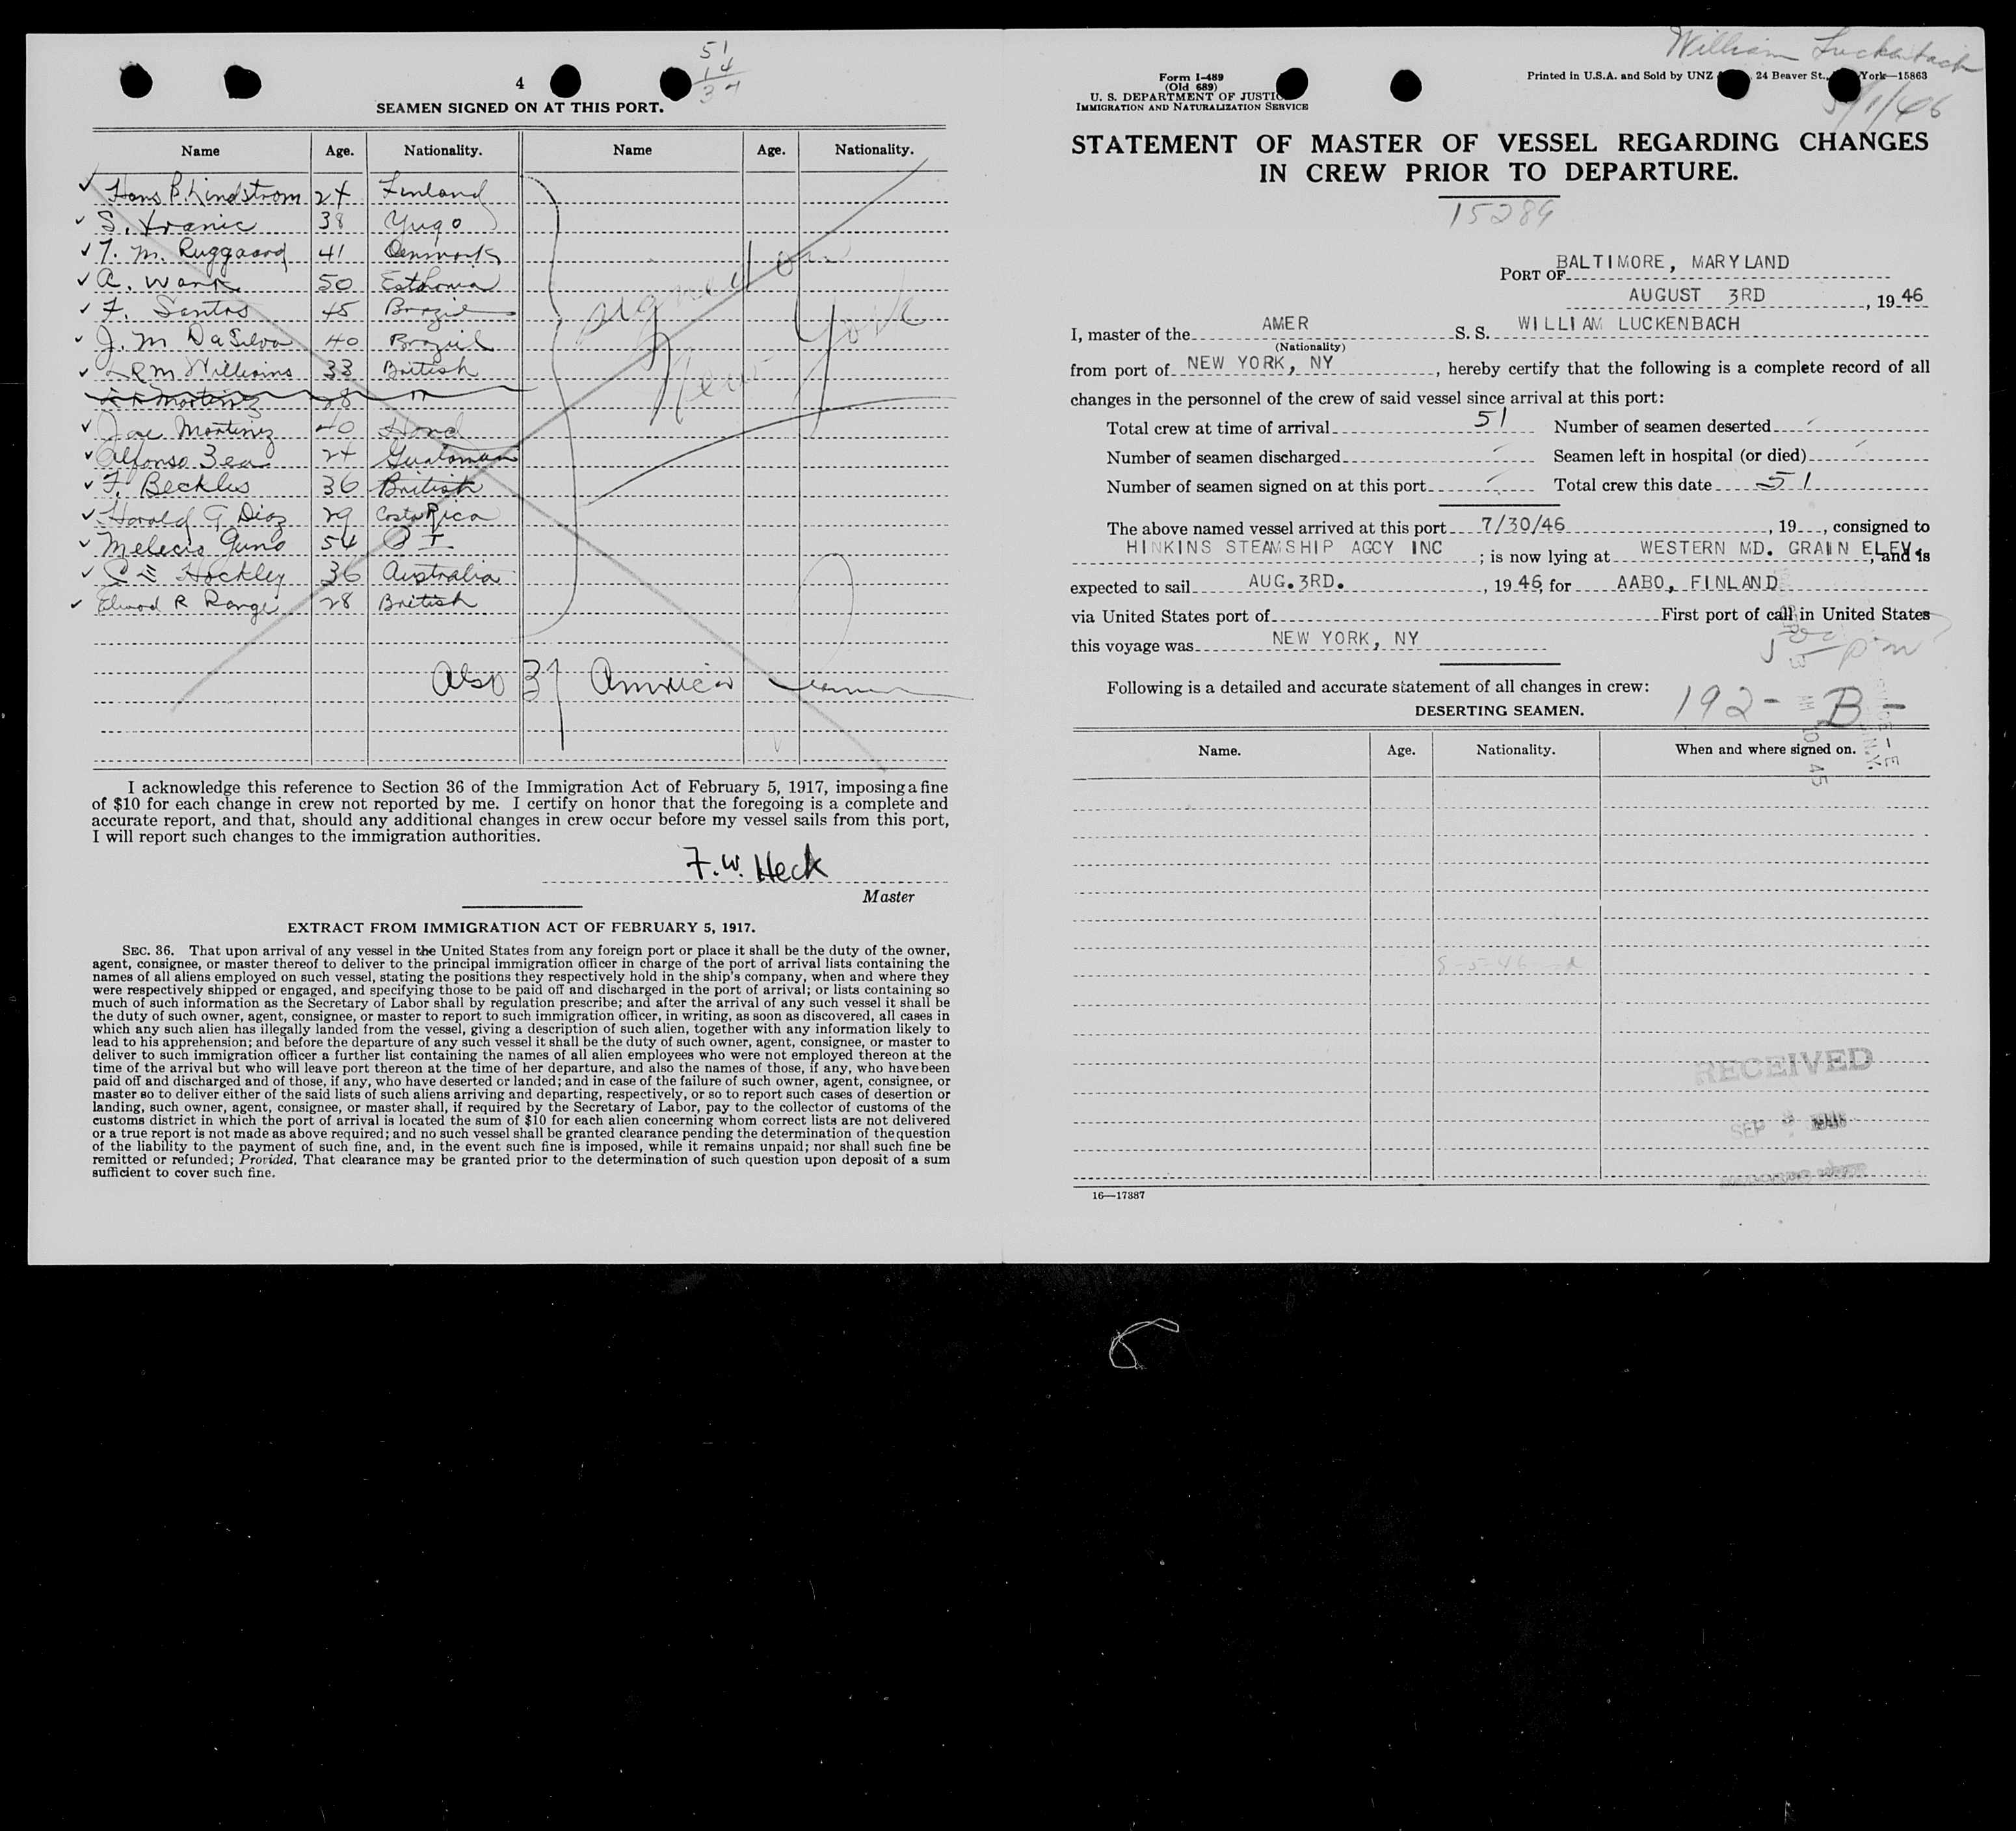 4
51
14
37
SEAMEN SIGNED ON AT THIS PORT.
Name Age. Nationality. Name Age. Nationality.
Hans B. Lindstrom 24 Finland
S. Vranic 38 Yugo
T. M. Ruggaard 41 Denmark
A. Wank 50 Esthonia
F. Santos 45 Brazil
J. M DaSilva 40 Brazil
L R M Williams 33 British
Martinez 28 "
Jose Martinez 40 Hond
Alfonso Zea 24 Guatamala
F. Beckles 36 British
Harold G Diaz 29 Costa Rica
Melecio Guno 54 P I
C E Hockley 36 Australia
Elwood R Range 28 British
signed on
New York
Also 37 American
I acknowledge this reference to Section 36 of the Immigration Act of February 5, 1917, imposing a fine
of $10 for each change in crew not reported by me. I certify on honor that the foregoing is a complete and
accurate report, and that, should any additional changes in crew occur before my vessel sails from this port,
I will report such changes to the immigration authorities.
F. W. Heck
Master
EXTRACT FROM IMMIGRATION ACT OF FEBRUARY 5, 1917.
SEC. 36. That upon arrival of any vessel in the United States from any foreign port or place it shall be the duty of the owner,
agent, consignee, or master thereof to deliver to the principal immigration officer in charge of the port of arrival lists containing the
names of all aliens employed on such vessel, stating the positions they respectively hold in the ship's company, when and where they
were respectively shipped or engaged, and specifying those to be paid off and discharged in the port of arrival; or lists containing so
much of such information as the Secretary of Labor shall by regulation prescribe; and after the arrival of any such vessel it shall be
the duty of such owner, agent, consignee, or master to report to such immigration officer, in writing, as soon as discovered, all cases in
which any such alien has illegally landed from the vessel, giving a description of such alien, together with any information likely to
lead to his apprehension; and before the departure of any such vessel it shall be the duty of such owner, agent, consignee, or master to
deliver to such immigration officer a further list containing the names of all alien employees who were not employed thereon at the
time of the arrival but who will leave port thereon at the time of her departure, and also the names of those, if any, who have been
paid off and discharged and of those, if any, who have deserted or landed; and in case of the failure of such owner, agent, consignee, or
master so to deliver either of the said lists of such aliens arriving and departing, respectively, or so to report such cases of desertion or
landing, such owner, agent, consignee, or master shall, if required by the Secretary of Labor, pay to the collector of customs of the
customs district in which the port of arrival is located the sum of $10 for each alien concerning whom correct lists are not delivered
or a true report is not made as above required; and no such vessel shall be granted clearance pending the determination of the question
of the liability to the payment of such fine, and, in the event such fine is imposed, while it remains unpaid; nor shall such fine be
remitted or refunded; Provided, That clearance may be granted prior to the determination of such question upon deposit of a sum
sufficient to cover such fine.
William Luckenbach
Form I-489
(Old 689)
U. S. DEPARTMENT OF JUSTIC
IMMIGRATION AND NATURALIZATION SERVICE
Printed in U.S.A. and Sold by UNZ 24 Beaver St., York—15863
STATEMENT OF MASTER OF VESSEL REGARDING CHANGES
IN CREW PRIOR TO DEPARTURE.
15289
PORT OF BALTIMORE, MARYLAND
AUGUST 3RD, 1946
I, master of the AMER S. S. WILLIAM LUCKENBACH
(Nationality)
from port of NEW YORK, NY, hereby certify that the following is a complete record of all
changes in the personnel of the crew of said vessel since arrival at this port:
Total crew at time of arrival 51 Number of seamen deserted
Number of seamen discharged Seamen left in hospital (or died)
Number of seamen signed on at this port Total crew this date 51
The above named vessel arrived at this port 7/30/46, 19, consigned to
HINKINS STEAMSHIP AGCY INC; is now lying at WESTERN MD. GRAIN ELEV, and is
expected to sail AUG. 3RD., 1946, for AABO, FINLAND
via United States port of First port of call in United States
this voyage was NEW YORK, NY
Following is a detailed and accurate statement of all changes in crew:
192- B-
DESERTING SEAMEN.
Name. Age. Nationality. When and where signed on.
RECEIVED
16—17387